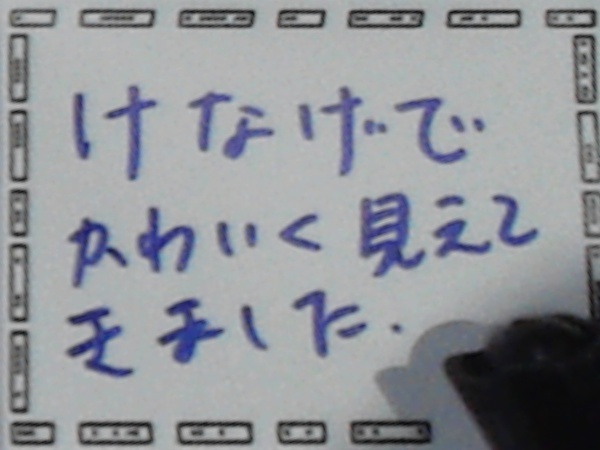 けなげで
かわいく見えて
きました.